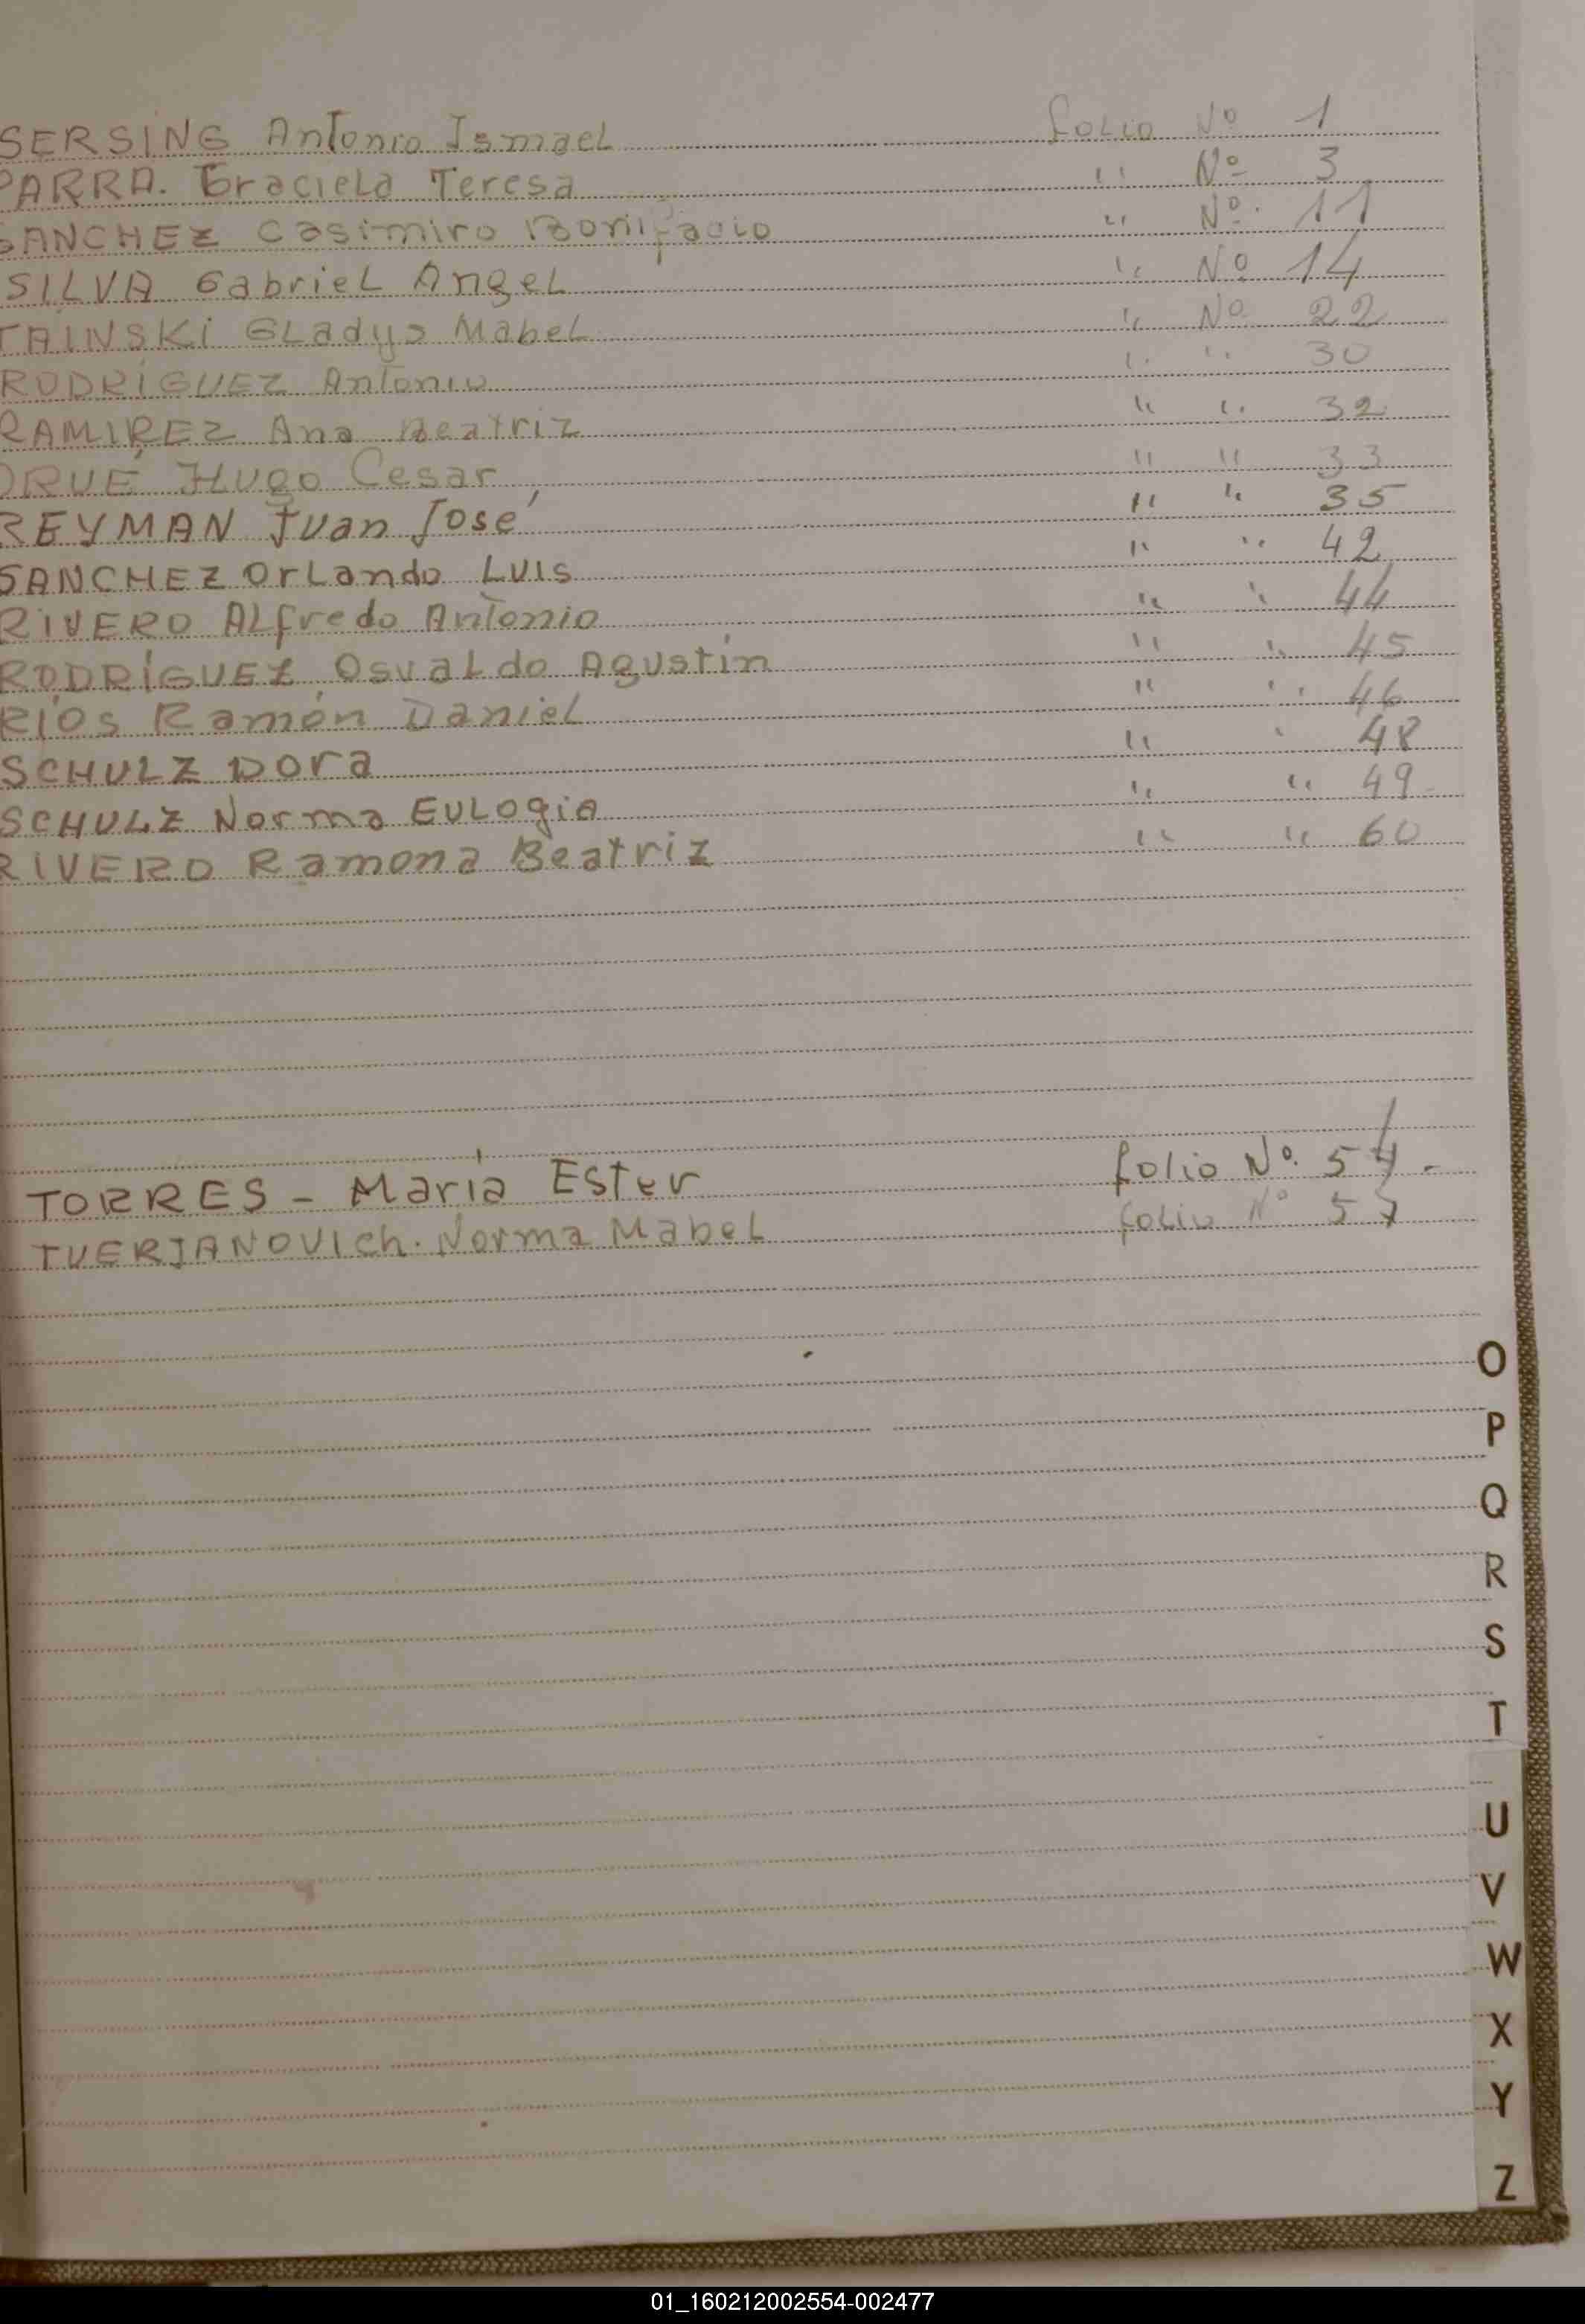 SERSING Antonio Ismael folio Nº 1
PARRA. Graciela Teresa " Nº 3
SANCHEZ Casimiro Bonifacio " Nº. 11
SILVA Gabriel Angel " Nº 14
TAINSKI Gladys Mabel " Nº 22
RODRÍGUEZ Antonio " " 30
RAMIREZ Ana Beatriz " " 32
ORUÉ Hugo Cesar " " 33
REYMAN Juan José " " 35
SANCHEZ Orlando Luis " " 42
RIVERO Alfredo Antonio " " 44
RODRÍGUEZ Osvaldo Agustín " " 45
RÍOS Ramón Daniel " " 46
SCHULZ Dora " " 48
SCHULZ Norma Eulogia " " 49
RIVERO Ramona Beatriz " " 60
TORRES - María Ester folio Nº. 54.
TUERJANOVICH. Norma Mabel folio Nº 57
O
P
Q
R
S
T
U
V
W
X
Y
Z
01_160212002554-002477